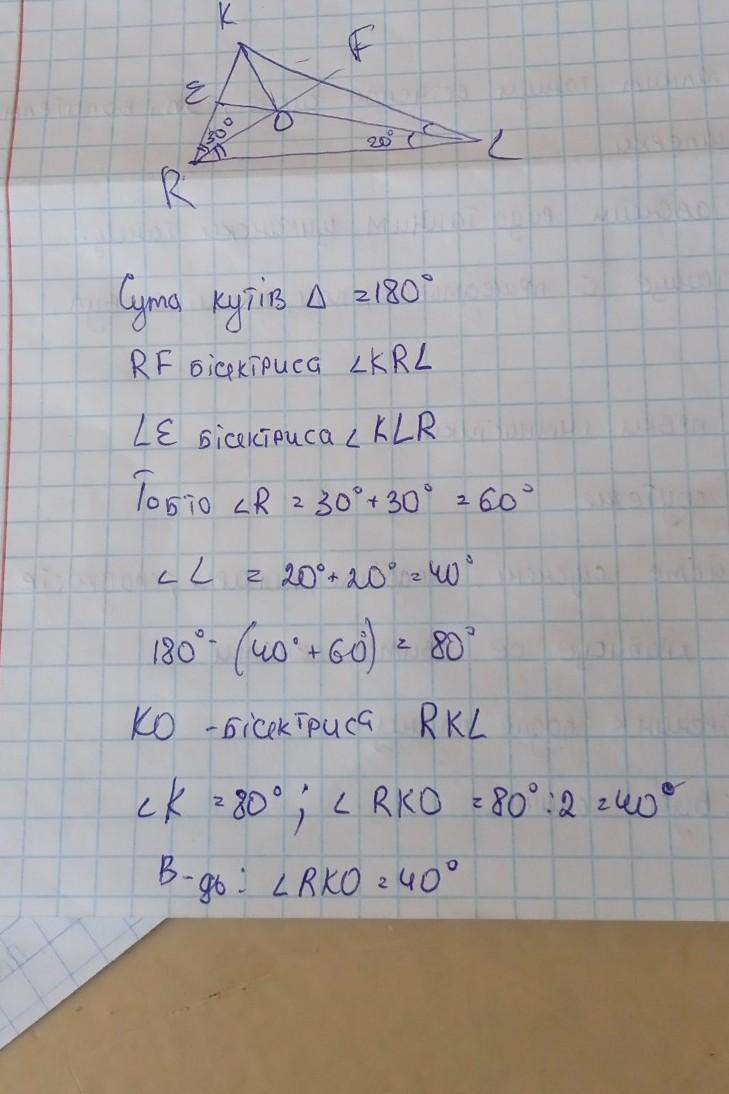 K
F
E
O
30°
20°
L
R
Сума кутів Δ = 180°
RF бісектриса ∠KRL
LE бісектриса ∠KLR
Тобто ∠R = 30° + 30° = 60°
∠L = 20° + 20° = 40°
180° - (40° + 60°) = 80°
KO - бісектриса RKL
∠K = 80° ; ∠RKO = 80° : 2 = 40°
В-дь: ∠RKO = 40°